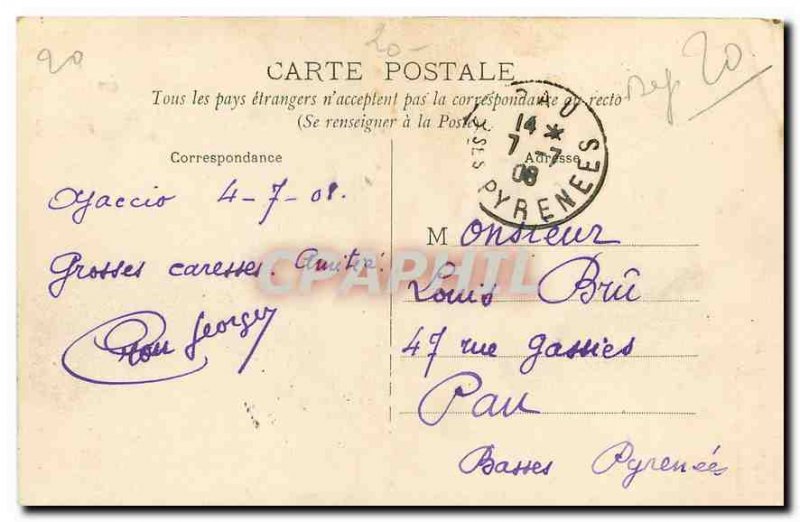 20
20-
20
CARTE POSTALE
Tous les pays étrangers n'acceptent pas la correspondance au recto
(Se renseigner à la Poste)
PAU
14 *
7 -7
08
BSSES PYRENEES
Correspondance
Adresse
Ajaccio 4-7-08.
Grosses caresses. Amitié.
Georges
Monsieur
Louis Brû
47 rue Gassies
Pau
Basses Pyrenées
CPAPHIL